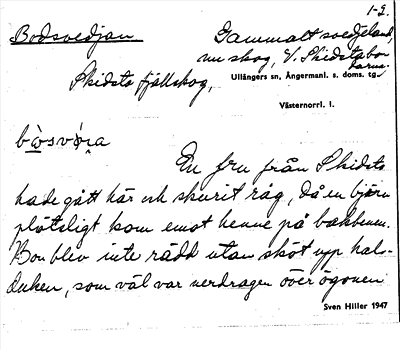 1-2.
Bodsvedjan
Gammalt svedjeland,
nu skog, V. Skidstabor
Skidsta fjällskog,
Ullångers sn, Ångermanl. s. doms. tg
Västernorrl. l.
En fru från Skidsta
hade gått här och skurit råg, då en björn
plötsligt kom emot henne på bakbenen.
Hon blev inte rädd utan sköt upp hals-
duken, som väl var nerdragen över ögonen
Sven Hiller 1947